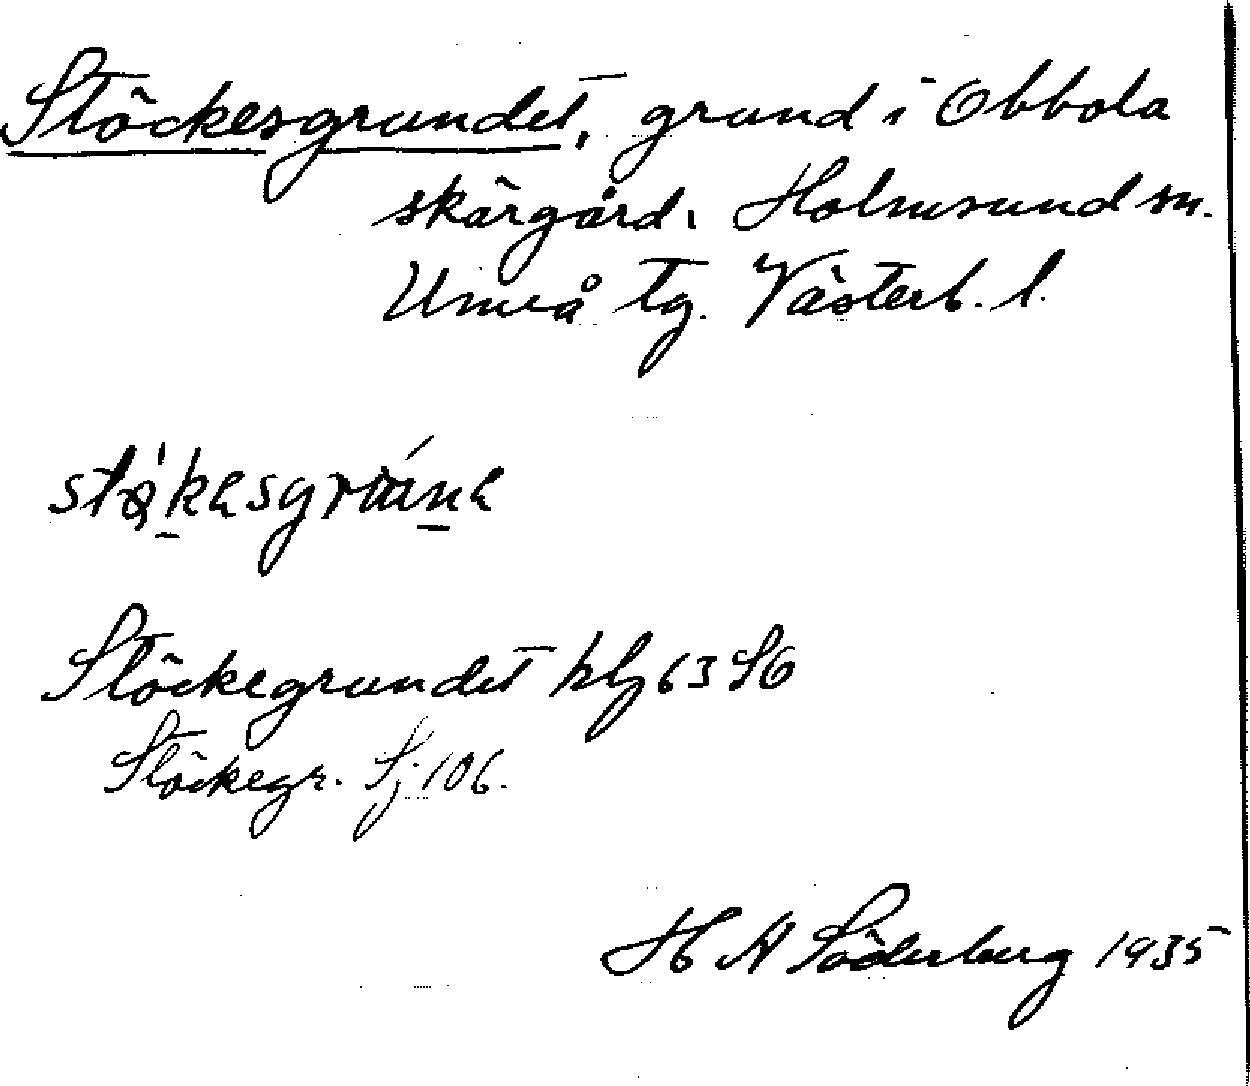 Stöckesgrundet, grund i Obbola
skärgård. Holmsund sn.
Umeå tg. Västerb. l.
Stöckegrundet blz 63 SO
Stöckegr. Sj. 106.
H A Söderberg 1935